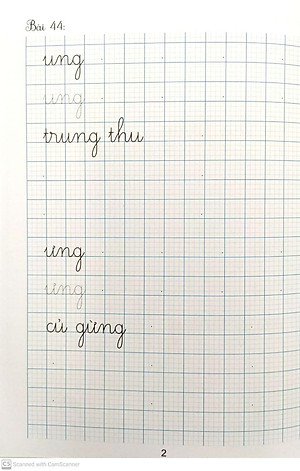 Bài 44:
ung
ung
trung thu
ưng
ưng
củ gừng
2
CS Scanned with CamScanner